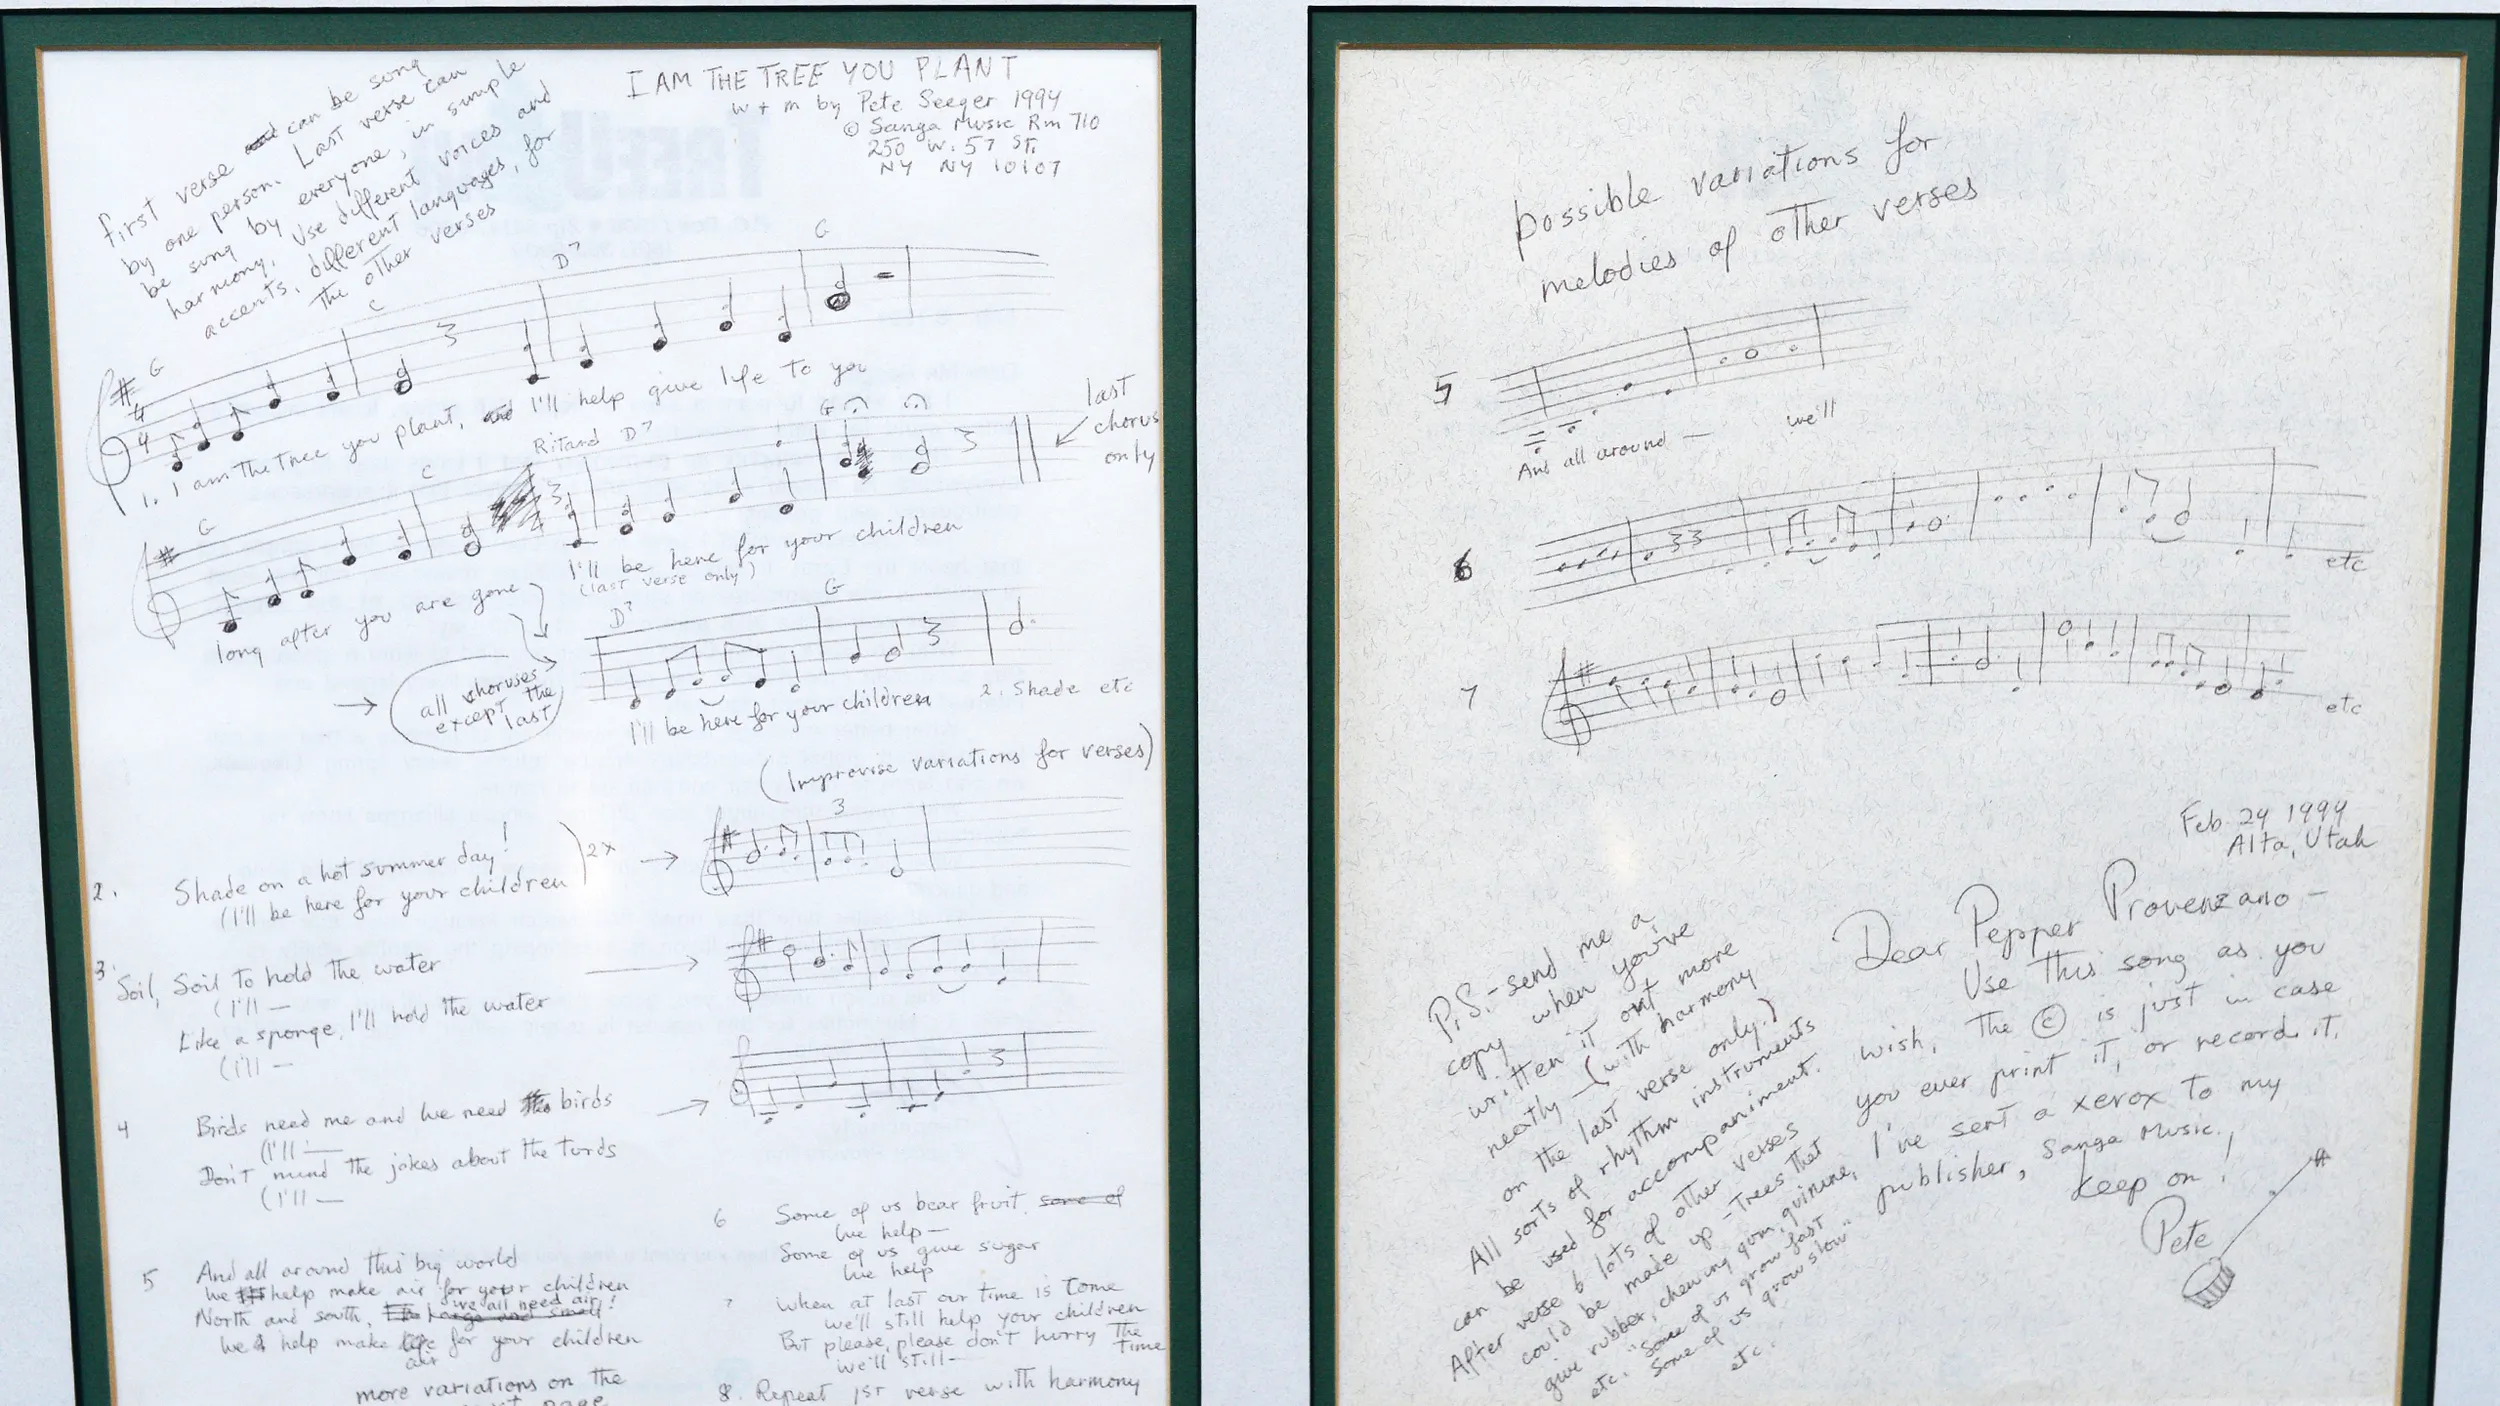 I AM THE TREE YOU PLANT
w + m by Pete Seeger 1994
© Sanga Music Rm 710
250 W. 57 St.
NY NY 10107
first verse can be sung
by one person. Last verse can
be sung by everyone, in simple
harmony. Use different voices and
accents, different languages, for
the other verses
G C D7 G
1. I am the tree you plant, and I'll help give life to you
G C Ritard D7 G
last
chorus
only
long after you are gone I'll be here for your children
(last verse only)
D7 G
all choruses
except the
last
I'll be here for your children 2. Shade etc
(Improvise variations for verses)
3
2. Shade on a hot summer day!
(I'll be here for your children
2x
3 Soil, Soil to hold the water
(I'll —
Like a sponge, I'll hold the water
(I'll —
4 Birds need me and we need birds
(I'll —
Don't mind the jokes about the turds
(I'll —
5 And all around this big world
we help make air for your children
North and south, we all need air!
large and small
we help make life for your children
air
more variations on the
page
6 Some of us bear fruit, some of
we help —
Some of us give sugar
we help
7 When at last our time is come
we'll still help your children
But please, please don't hurry the
time
we'll still —
8. Repeat 1st verse with harmony
possible variations for
melodies of other verses
5
And all around — we'll
6
etc
7
etc
Feb. 24 1994
Alta, Utah
Dear Pepper Provenzano —
Use this song as you
wish. The © is just in case
you ever print it, or record it.
I've sent a xerox to my
publisher, Sanga Music.
Keep on!
Pete
P.S. - send me a
copy when you've
written it out more
neatly — (with harmony
on the last verse only.)
All sorts of rhythm instruments
can be used for accompaniment.
After verse 6 lots of other verses
could be made up - trees that
give rubber, chewing gum, quinine,
etc. "Some of us grow fast
Some of us grow slow"
etc.